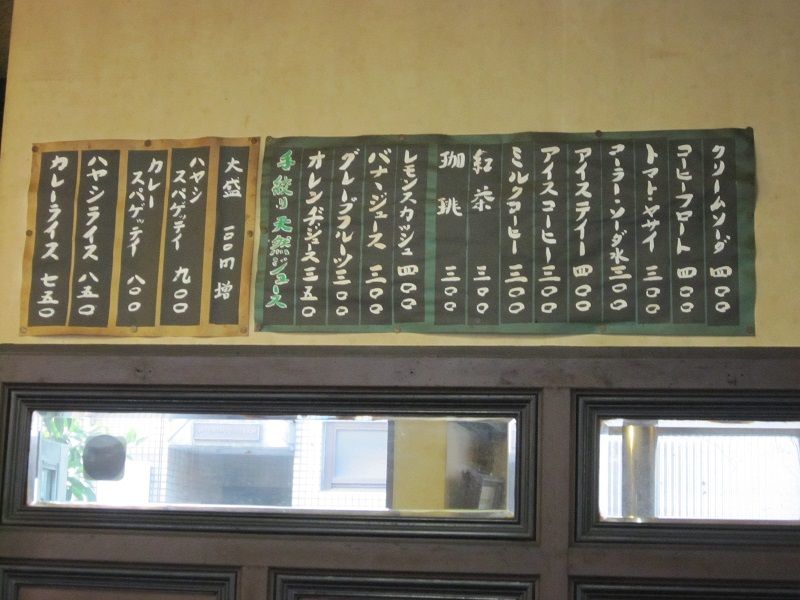 クリームソーダ 四〇〇
コーヒーフロート 四〇〇
トマト・ヤサイ 三〇〇
コーラー・ソーダ水 三〇〇
アイスティー 四〇〇
アイスコーヒー 三〇〇
ミルクコーヒー 三〇〇
紅茶 三〇〇
珈琲 三〇〇
レモンスカッシュ 四〇〇
バナヽジュース 三〇〇
グレープフルーツ 三〇〇
オレンヂジュース 三五〇
手絞り天然ジュース
大盛 一〇〇円増
ハヤシ
スパゲッテイ 九〇〇
カレー
スパゲッテイ 八〇〇
ハヤシライス 八五〇
カレーライス 七五〇